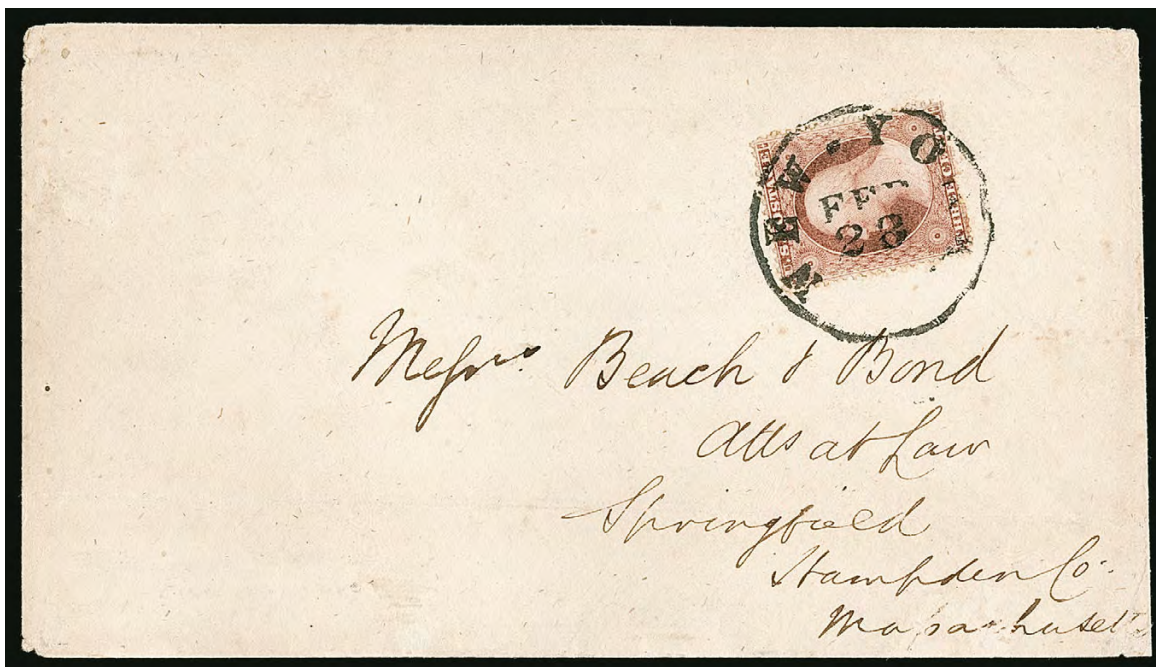 NEW-YO
FEB
23
Messrs. Beach & Bond
Atts at Law
Springfield
Hampden Co.
Massachusetts